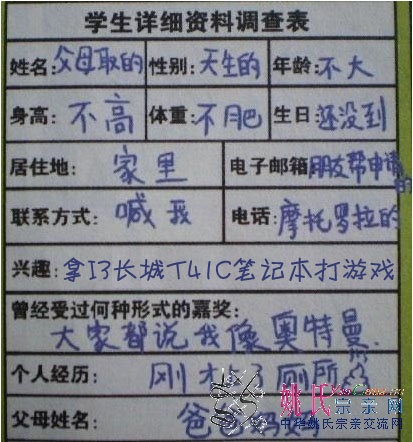 学生详细资料调查表
姓名:父母取的 性别:天生的 年龄:不大
身高:不高 体重:不肥 生日:还没到
居住地:家里 电子邮箱朋友帮申请的
联系方式:喊我 电话:摩托罗拉的
兴趣:拿I3长城T41C笔记本打游戏
曾经受过何种形式的嘉奖:
大家都说我像奥特曼
个人经历:刚 了厕所
父母姓名:爸爸妈
姚氏宗亲网
中华姚氏宗亲交流网